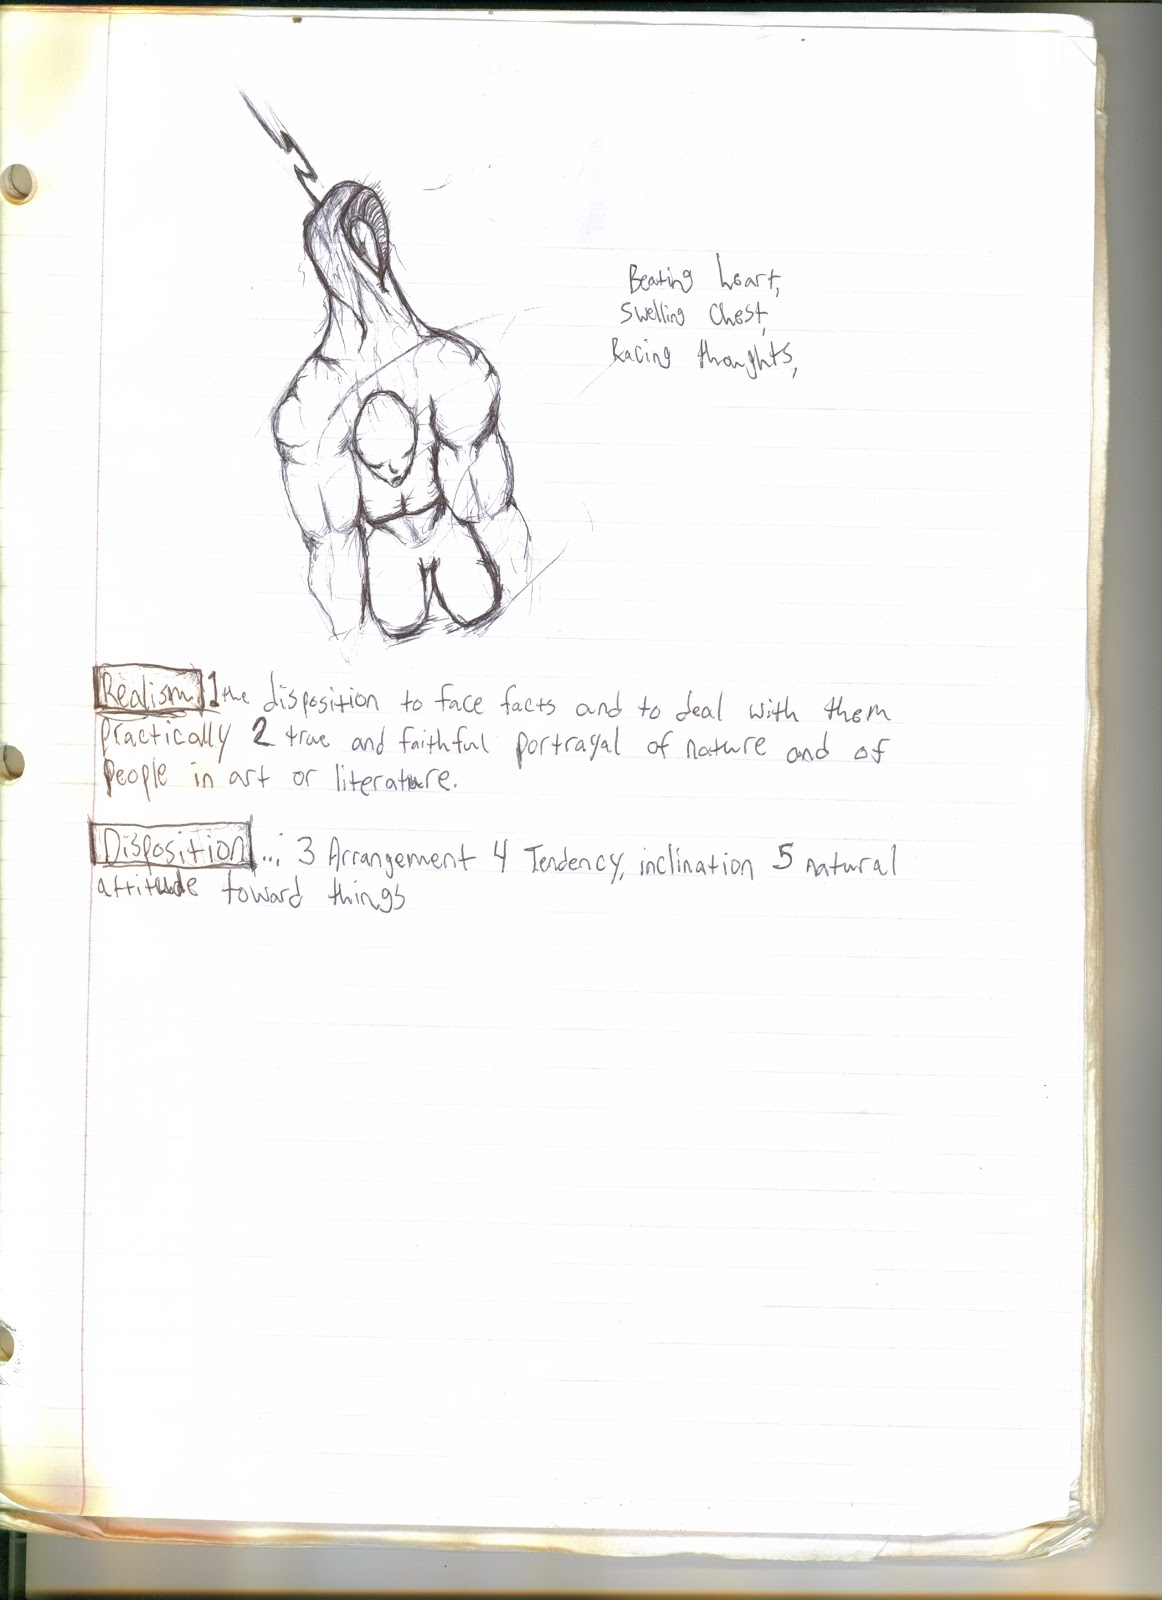 Beating heart,
Swelling Chest,
Racing thoughts,
Realism 1 the disposition to face facts and to deal with them
practically 2 true and faithful portrayal of nature and of
people in art or literature.
Disposition ...; 3 Arrangement 4 Tendency, inclination 5 natural
attitude toward things